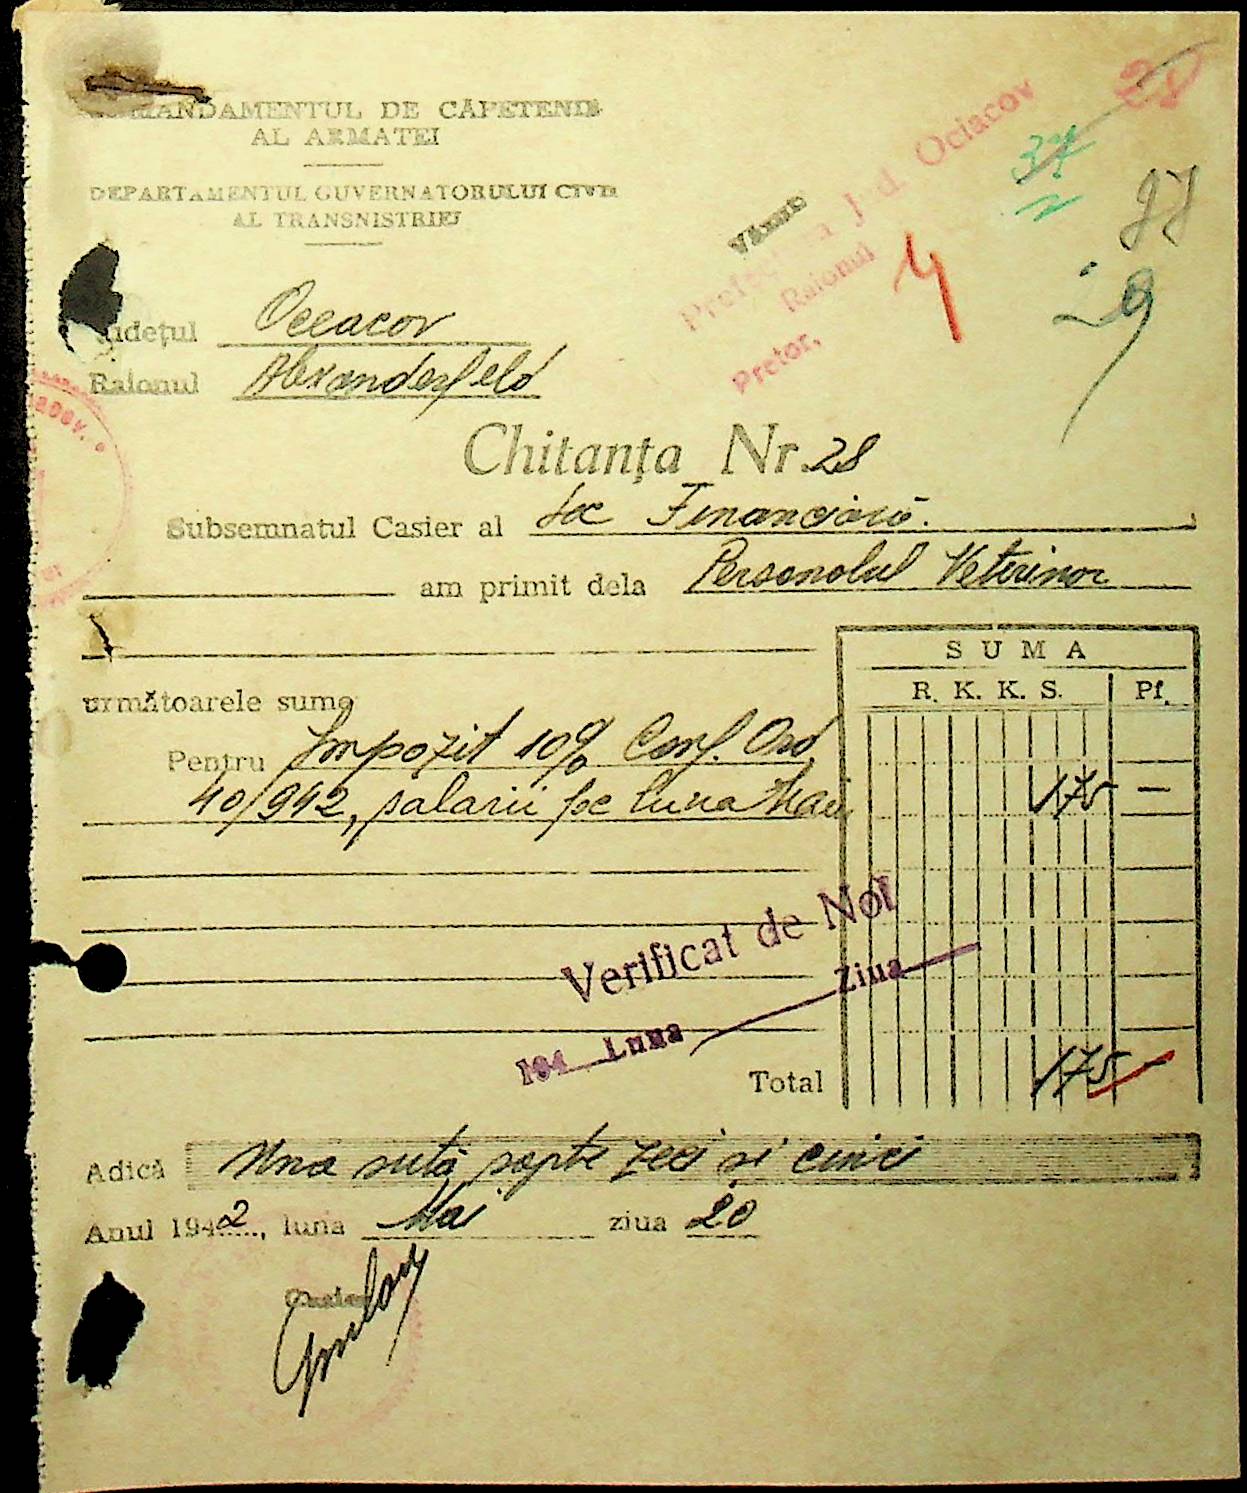 COMANDAMENTUL DE CĂPETENIE
AL ARMATEI
DEPARTAMENTUL GUVERNATORULUI CIVIL
AL TRANSNISTRIEI
28
37
2
97
29
4
VĂZUT
Jud. Ociacov
Raionul
Pretor,
Județul Oceacov
Raionul Alexanderfeld
Chitanța Nr. 28
Subsemnatul Casier al Financiară.
am primit dela Personalul Veterinar
SUMA
R. K. K. S. Pf.
următoarele sume
Pentru Impozit 10% Conf. Ord.
40/942, salarii pe luna Mai. 175 —
Verificat de Noi
194 Luna Ziua
Total 175 —
Adică Una sută șapte zeci si cinci
Anul 1942, luna Mai ziua 20
Casier